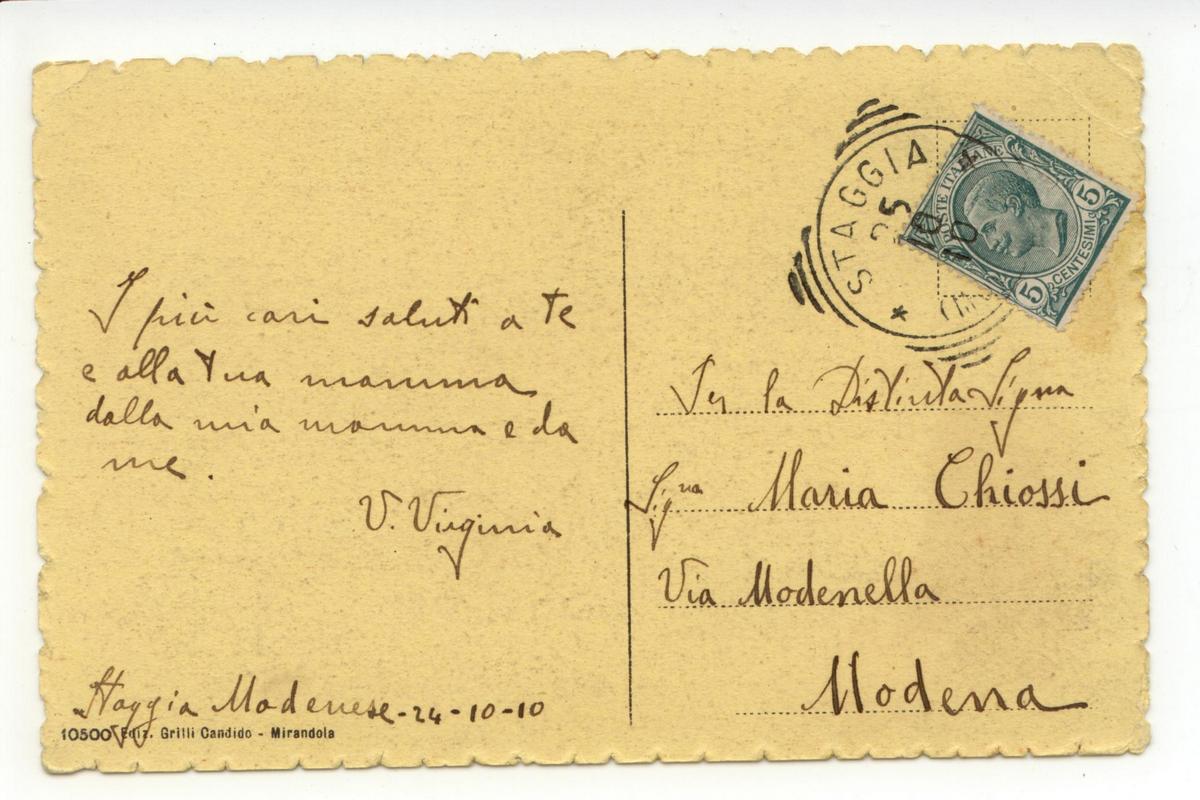 I più cari saluti a te
e alla tua mamma
dalla mia mamma e da
me.
V. Virginia
Staggia Modenese - 24 - 10 - 10
10500 Ediz. Grilli Candido - Mirandola
STAGGIA
25
10
10
POSTE ITALIANE
5 CENTESIMI 5
Per la Distinta Signa
Signa Maria Chiossi
Via Modenella
Modena